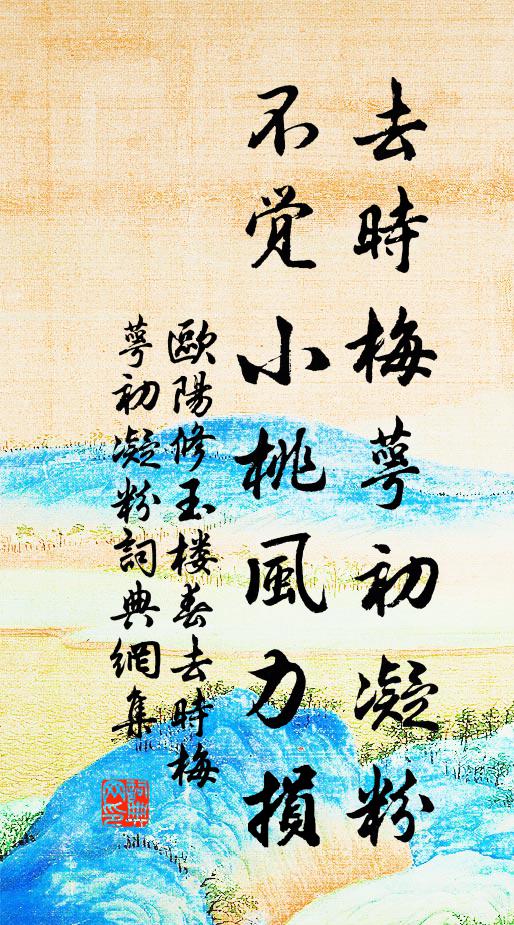 去時梅萼初凝粉
不觉小桃風力損
歐陽修玉楼春去時梅
萼初凝粉詞典網集